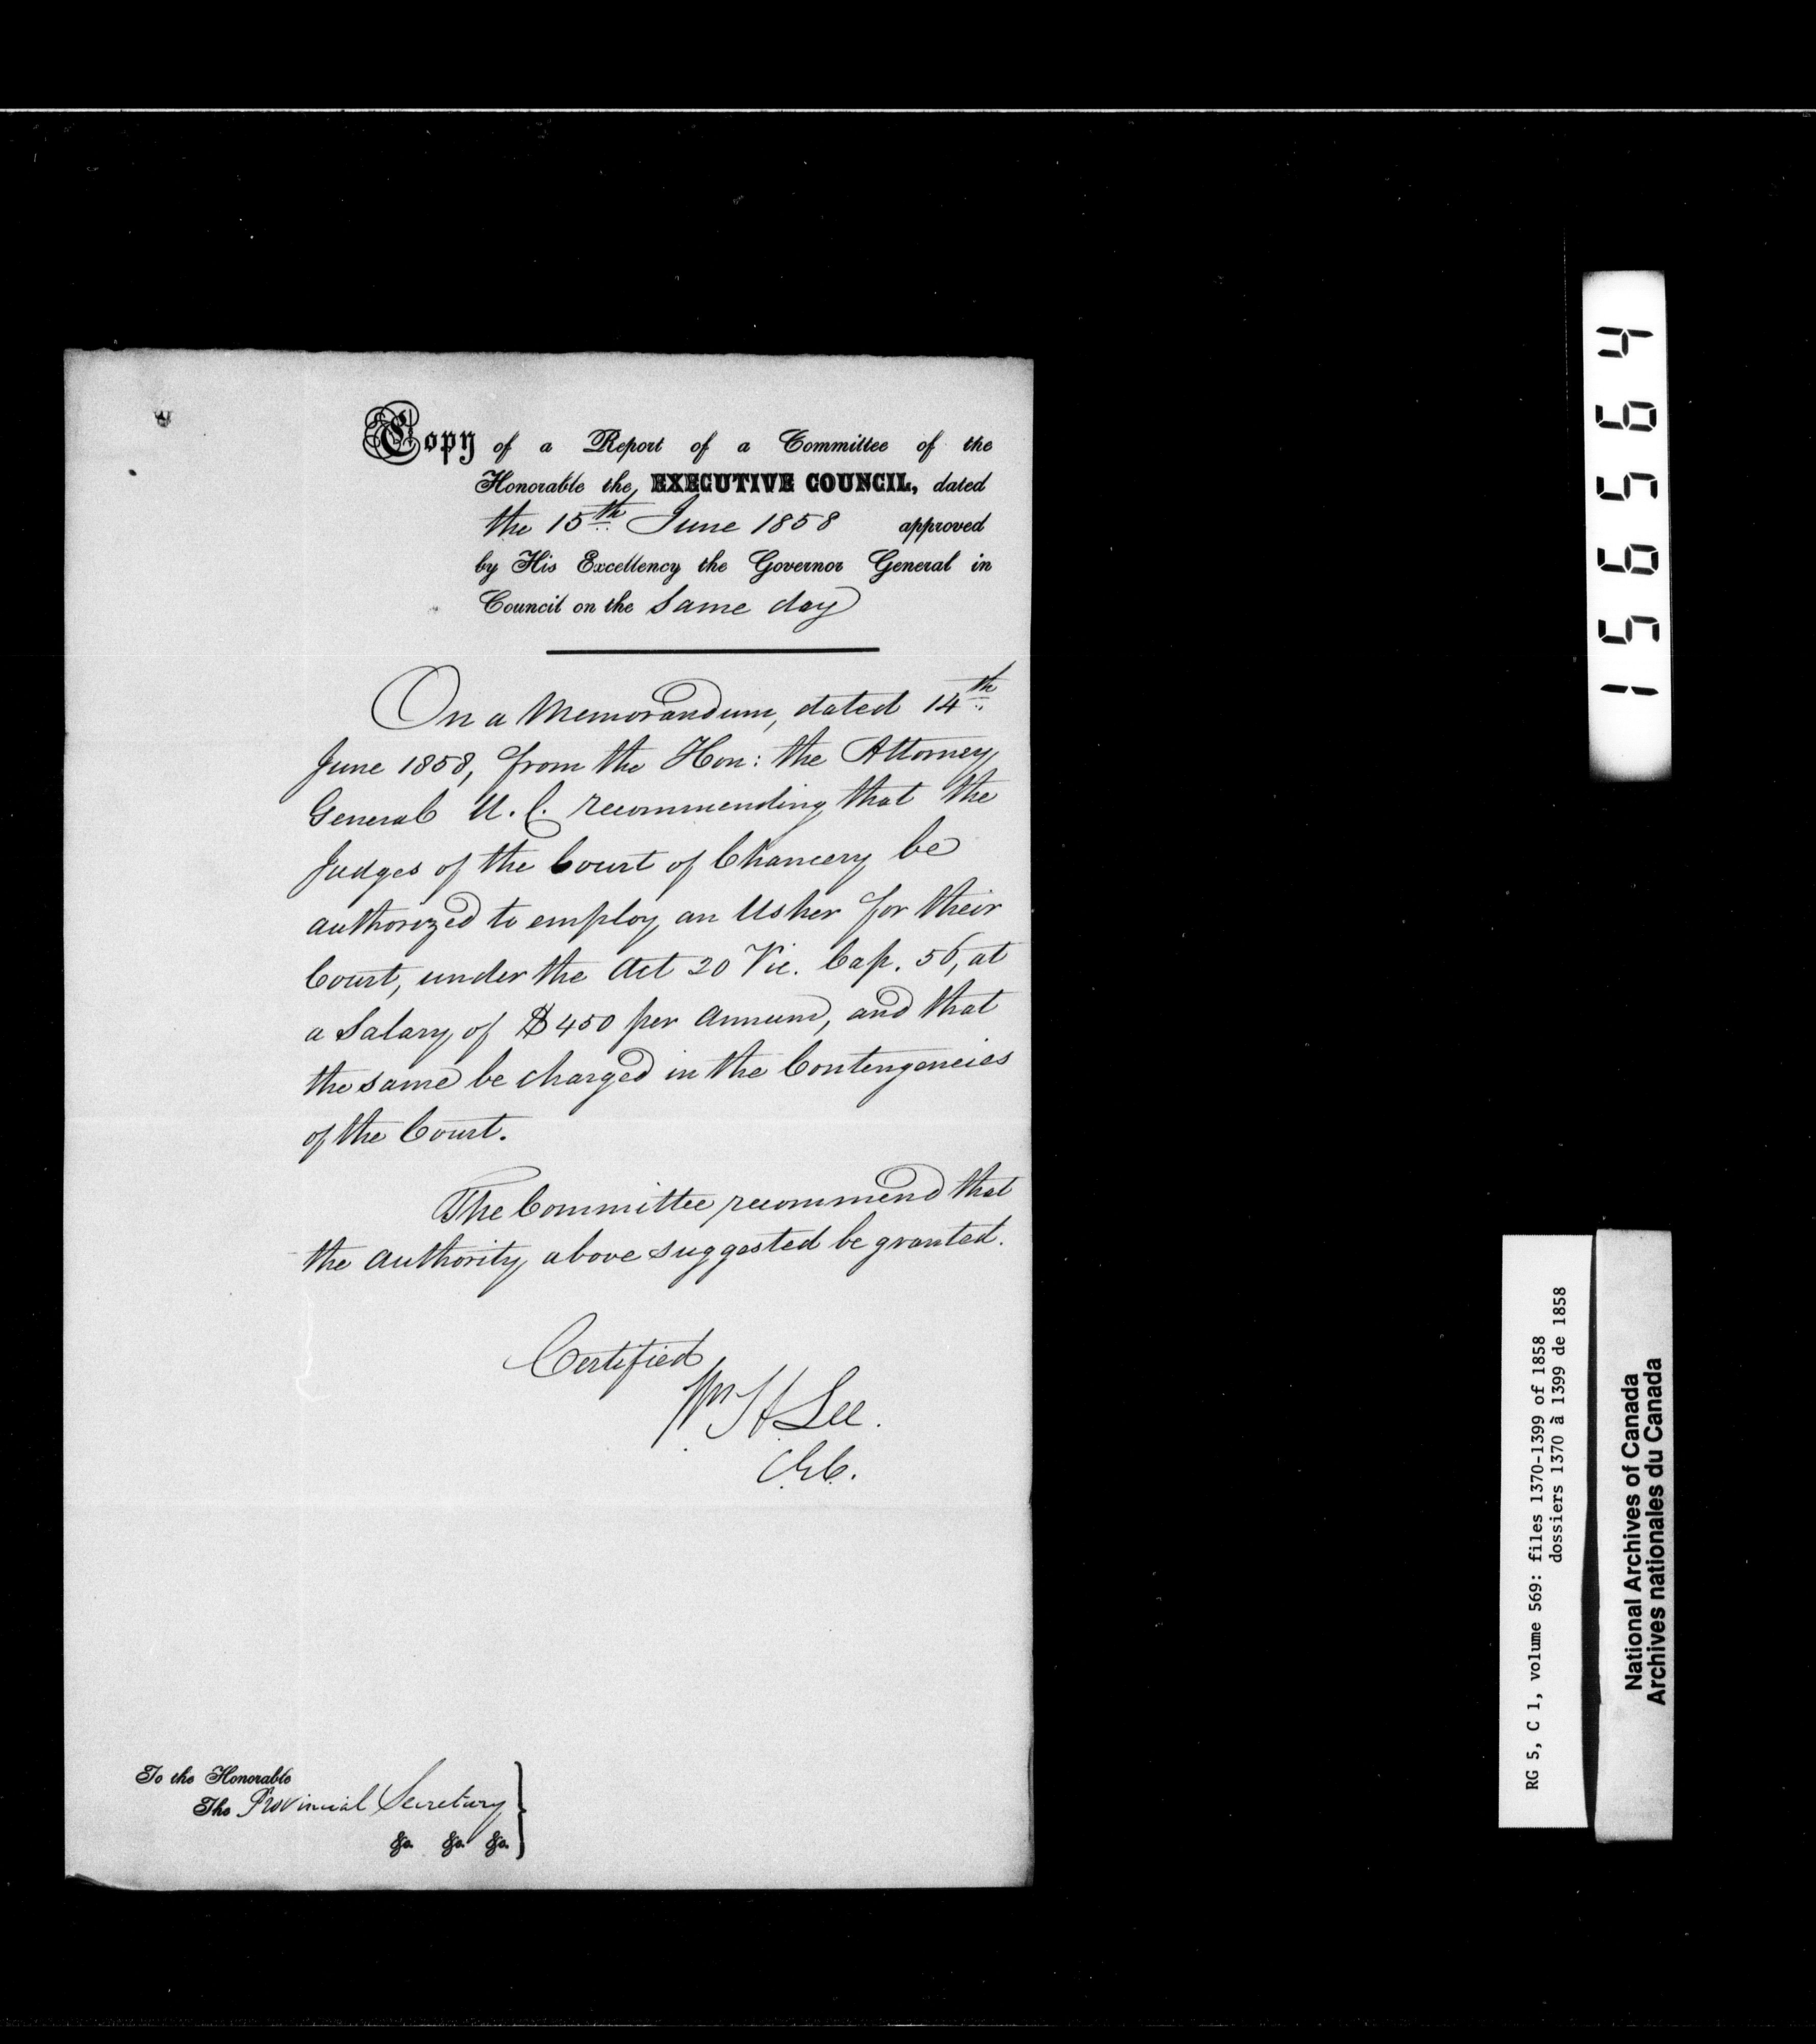 Copy of a Report of a Committee of the
Honorable the EXECUTIVE COUNCIL, dated
the 15th June 1858 approved
by His Excellency the Governor General in
Council on the same day
On a Memorandum, dated 14th
June 1858, from the Hon: the Attorney
General U.C. recommending that the
Judges of the Court of Chancery be
authorized to employ an Usher for their
Court, under the Act 20 Vic. Cap. 56, at
a Salary of $450 per Annum, and that
the same be charged in the Contengencies
of the Court.
The Committee recommend that
the Authority above suggested be granted.
Certified
Wm H Lee.
C.E.C.
To the Honorable
The Provincial Secretary
&c. &c. &c.
156564
RG 5, C 1, volume 569: files 1370-1399 of 1858
dossiers 1370 à 1399 de 1858
National Archives of Canada
Archives nationales du Canada